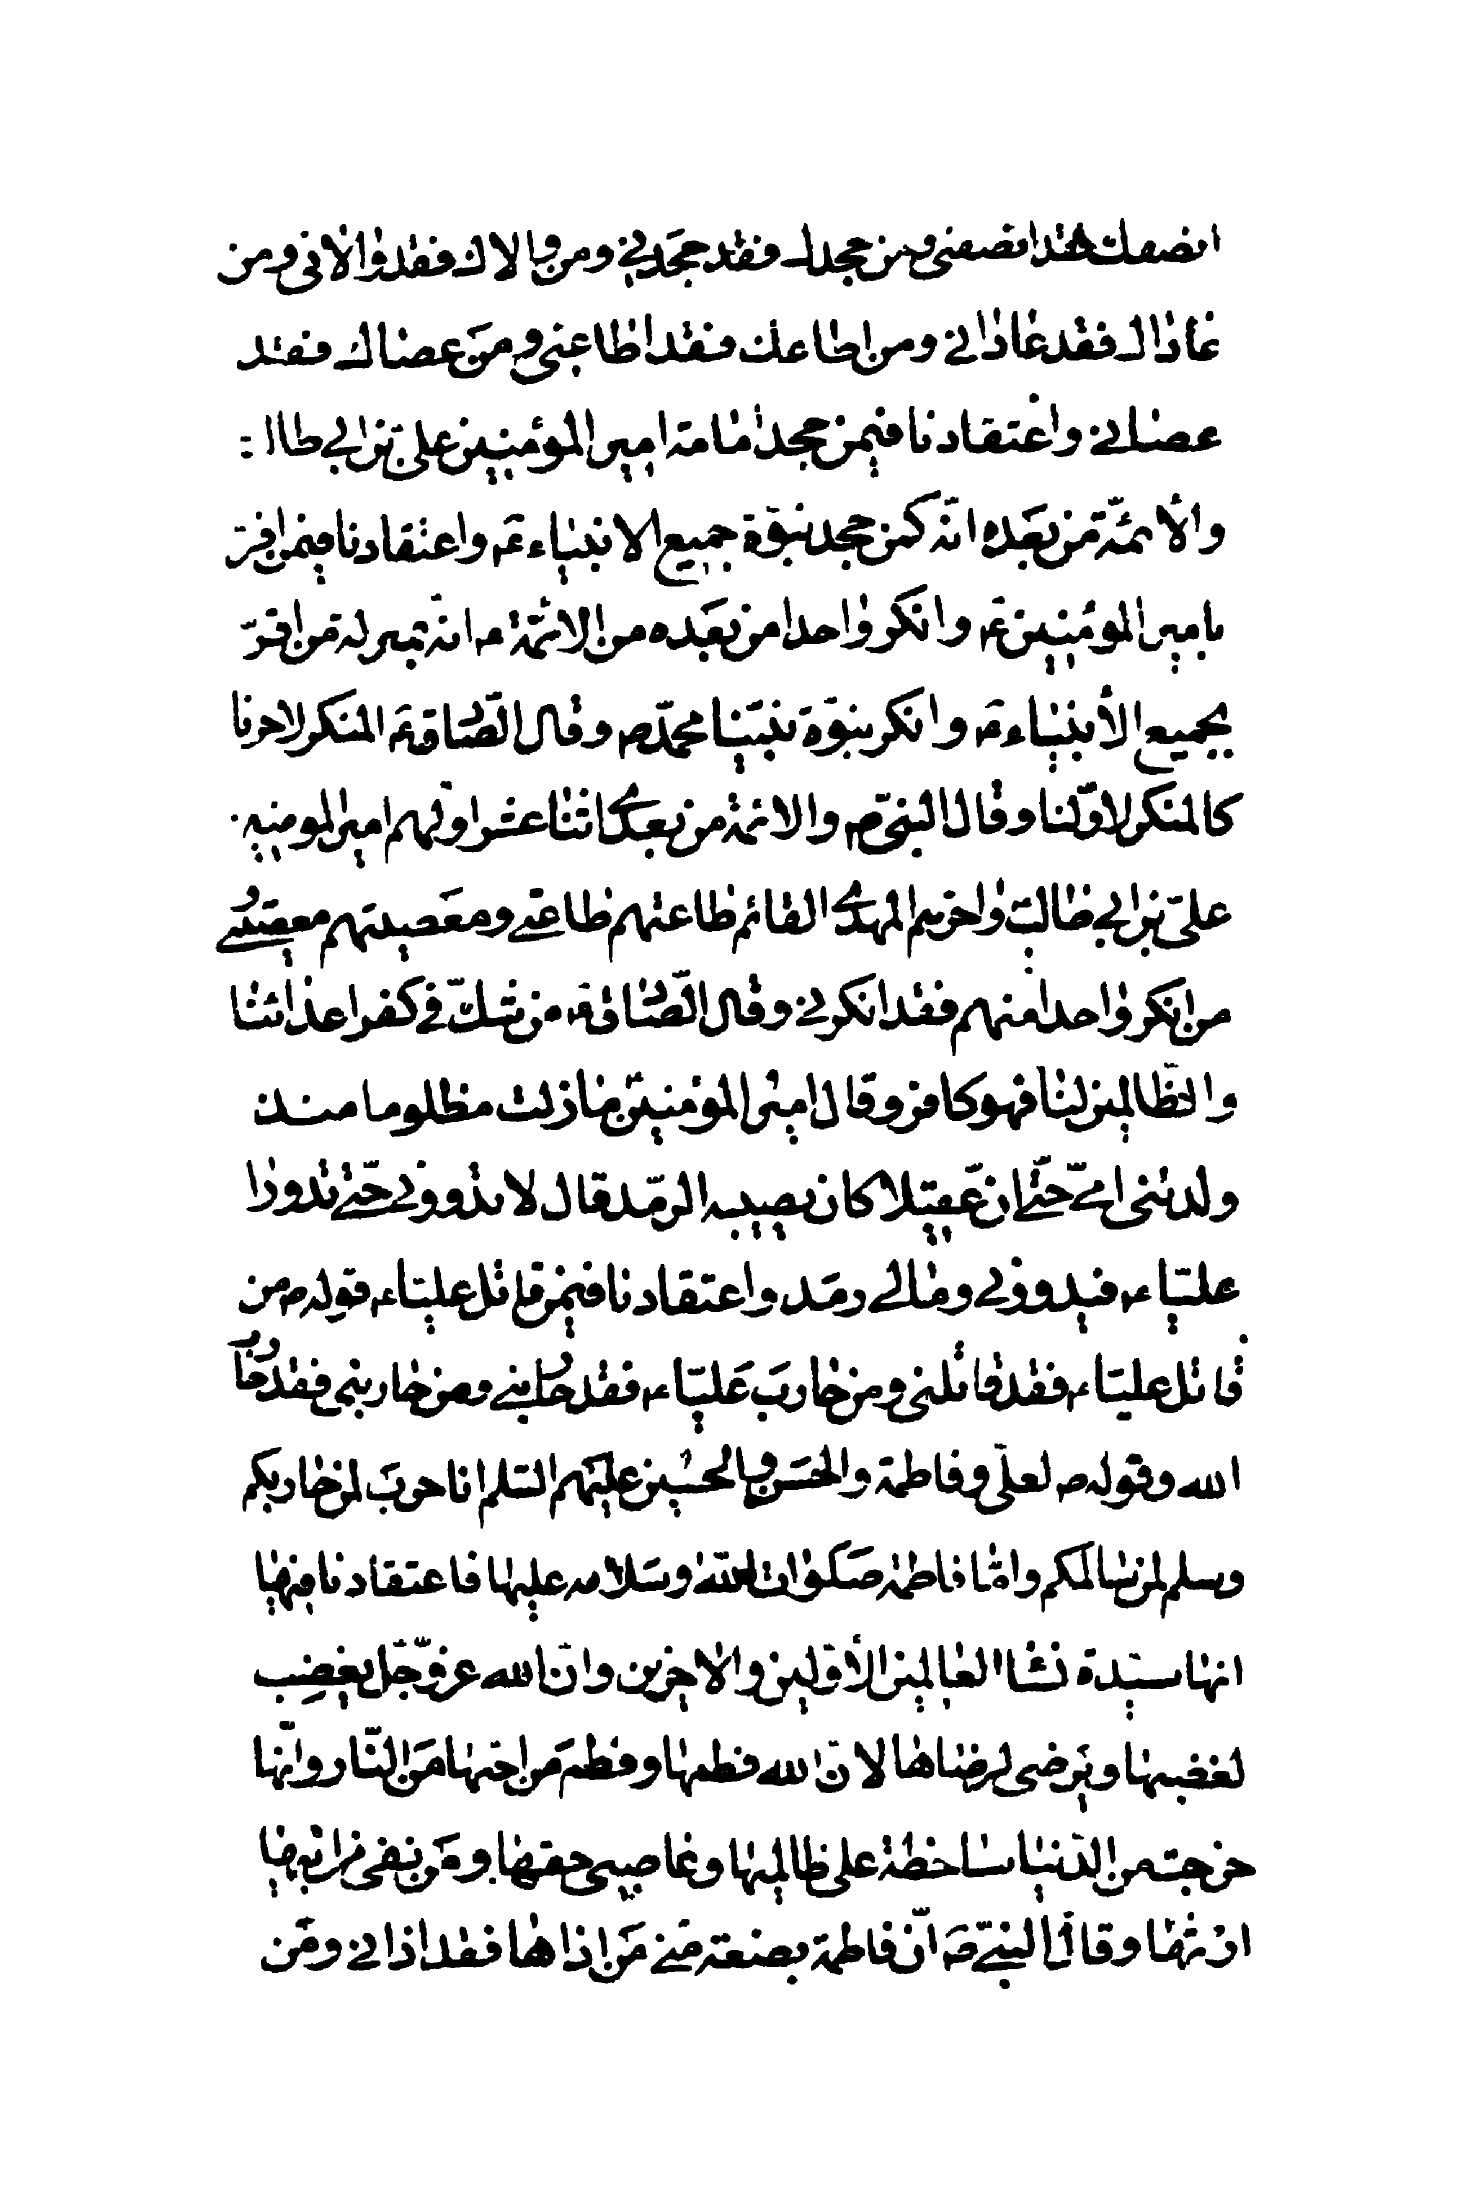 انصفك فقد انصفنى ومن جحدك فقد جحدنى ومن والاك فقد والانى ومن
عاداك فقد عادانى ومن اطاعك فقد اطاعنى ومن عصاك فقد
عصانى واعتقادنا فيمن جحد امامة امير المؤمنين علىّ بن ابى طالب
والأئمّة من بعده انّه كمن جحد نبوّة جميع الانبياء عم واعتقادنا فيمن اقرّ
بامير المؤمنين عم وانكر واحدا من بعده من الائمّة عم انّه بمنزلة من اقرّ
بجميع الأنبياء عم وانكر بنبوّة نبيّنا محمّد ص وقال الصّادق عم المنكر لاخرنا
كالمنكر لاوّلنا وقال النبىّ ص والائمة من بعدى اثنا عشر اوّلهم امير المومنين
علىّ بن ابى طالب واخرهم المهدى القائم طاعتهم طاعتى ومعصيتهم معصيتى
من انكر واحدا منهم فقد انكرنى وقال الصّادق عم من شكّ فى كفر اعدائنا
والظّالمين لنا فهو كافر وقال امير المؤمنين ع ما زلت مظلوما منذ
ولدتنى امّى حتّى انّ عقيلا كان يصيبه الرمّد فقال لا تذوونى حتّى تذووا
عليّا ع فيذوونى ومالى رمد واعتقادنا فيمن قاتل عليّا ع قوله ص من
قاتل عليّا ع فقد قاتلنى ومن حارب عليّا ع فقد حاربنى ومن حاربنى فقد حارب
الله وقوله ص لعلى وفاطمة والحسن والحسين عليهم السّلم انا حرب لمن حاربكم
وسلم لمن سالمكم وامّا فاطمة صلوات الله وسلامه عليها فاعتقادنا فيها
انها سيّدة نساء العالمين الأوّلين والاخرين وانّ الله عزّ وجّل يغضب
لغضبها ويرضى لرضاها لانّ الله فطمها وفطم من احبّها من النّار وانّها
خرجت من الدّنيا ساخطة على ظالميها وغاصبى حقها ومن نفى من ابيها
ارثها وقال النبىّ ص انّ فاطمة بضعة منّى من اذاها فقد اذانى ومن